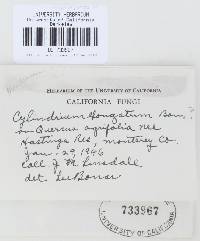 UNIVERSITY HERBARIUM
University of California
Berkeley
HERBARIUM OF THE UNIVERSITY OF CALIFORNIA
CALIFORNIA FUNGI
Cylindrium elongatum Bon.
on Quercus agrifolia Nee
Hastings Res, Monterey Co.
Jan. 29, 1946
Coll J. M. Linsdale
det. Lee Bonar
733967
UNIVERSITY OF CALIFORNIA